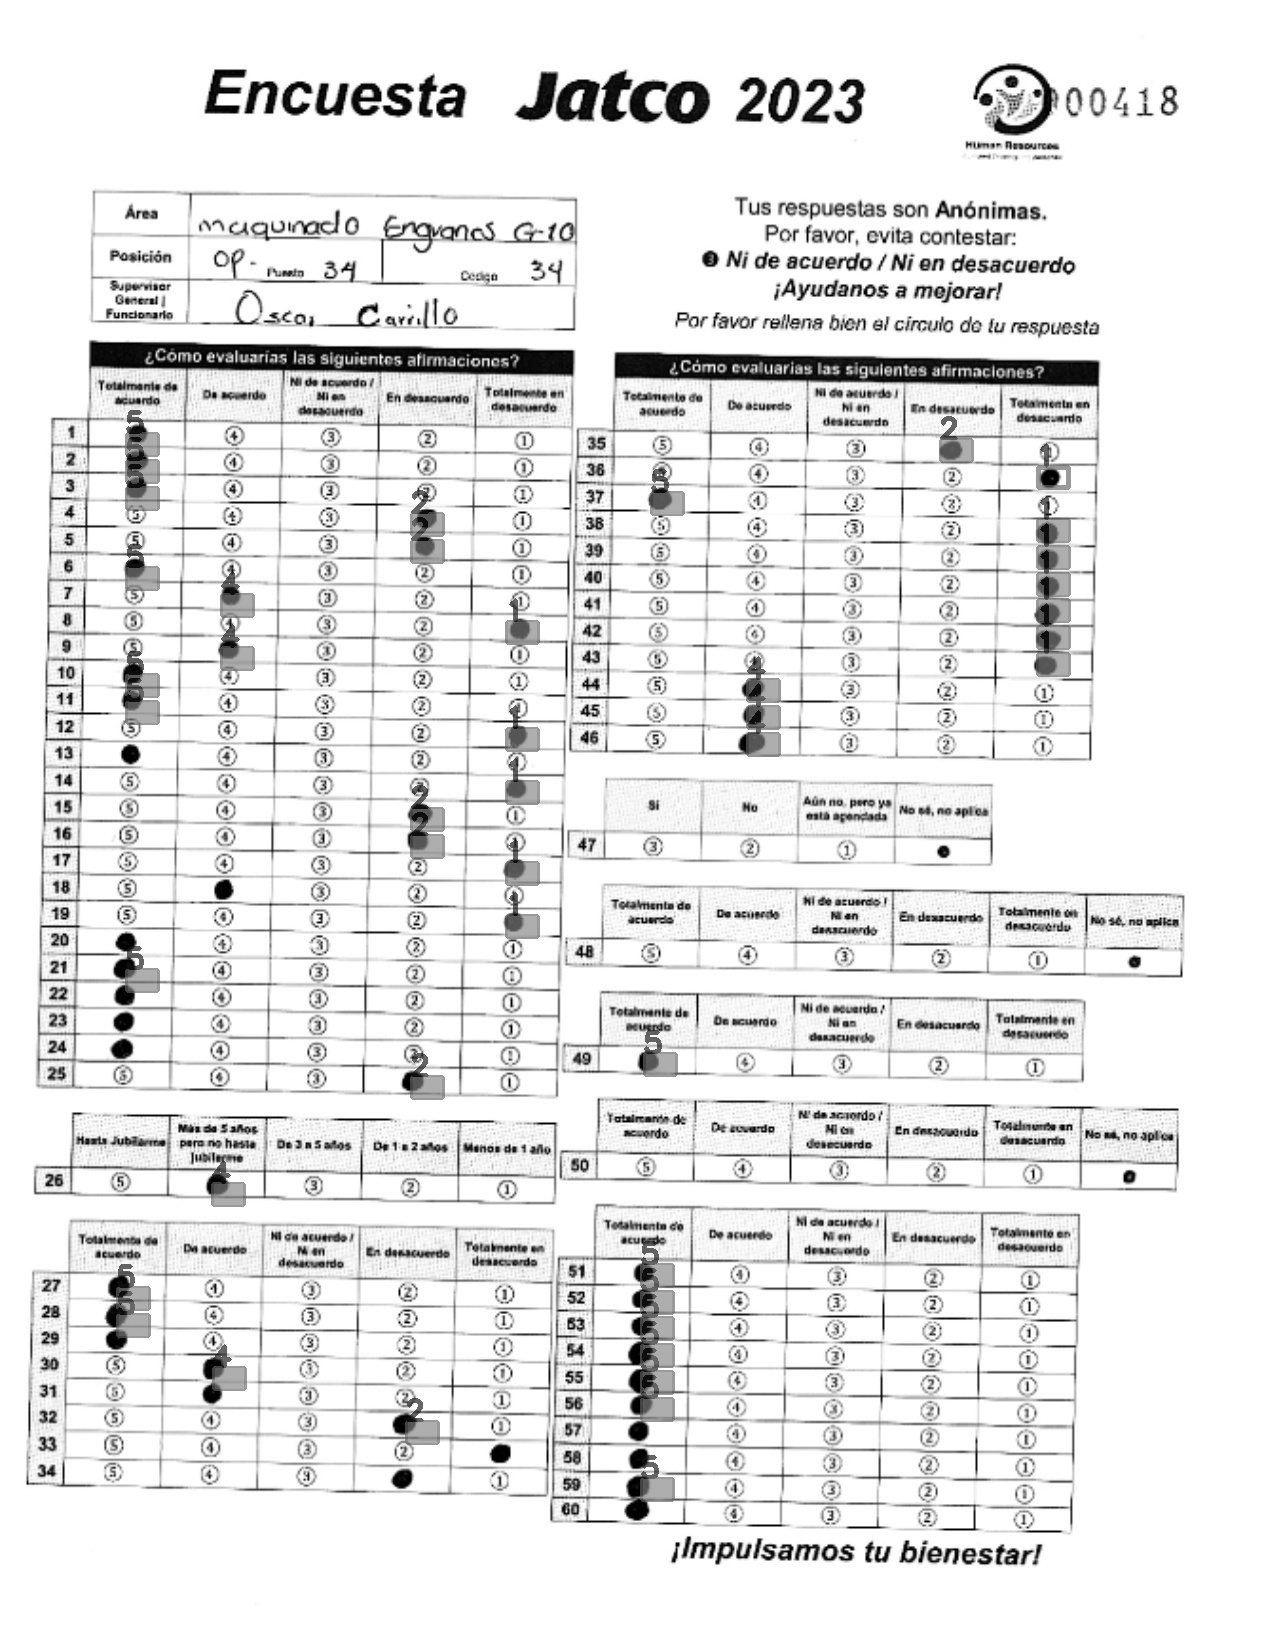 Encuesta Jatco 2023
000418
Human Resources
Área maquinado Engranes G-10
Posición OP- Puesto 34 Codigo 34
Supervisor General / Funcionario Oscar Carrillo
Tus respuestas son Anónimas.
Por favor, evita contestar:
❸ Ni de acuerdo / Ni en desacuerdo
¡Ayudanos a mejorar!
Por favor rellena bien el círculo de tu respuesta
¿Cómo evaluarías las siguientes afirmaciones?
Totalmente de acuerdo De acuerdo Ni de acuerdo / Ni en desacuerdo En desacuerdo Totalmente en desacuerdo
1 5 ④ ③ ② ①
2 5 ④ ③ ② ①
3 5 ④ ③ ② ①
4 ⑤ ④ ③ 2 ①
5 ⑤ ④ ③ 2 ①
6 5 ④ ③ ② ①
7 ⑤ 4 ③ ② ①
8 ⑤ ④ ③ ② 1
9 ⑤ 4 ③ ② ①
10 5 ④ ③ ② ①
11 5 ④ ③ ② ①
12 ⑤ ④ ③ ② 1
13 ④ ③ ② ①
14 ⑤ ④ ③ ② 1
15 ⑤ ④ ③ 2 ①
16 ⑤ ④ ③ 2 ①
17 ⑤ ④ ③ ② 1
18 ⑤ ③ ② ①
19 ⑤ ④ ③ ② 1
20 ④ ③ ② ①
21 5 ④ ③ ② ①
22 ④ ③ ② ①
23 ④ ③ ② ①
24 ④ ③ ② ①
25 ⑤ ④ ③ 2 ①
Hasta Jubilarme Mas de 5 años pero no hasta jubilarme De 3 a 5 años De 1 a 2 años Menos de 1 año
26 ⑤ 4 ③ ② ①
Totalmente de acuerdo De acuerdo Ni de acuerdo / Ni en desacuerdo En desacuerdo Totalmente en desacuerdo
27 5 ④ ③ ② ①
28 5 ④ ③ ② ①
29 ④ ③ ② ①
30 ⑤ 4 ③ ② ①
31 ⑤ ③ ② ①
32 ⑤ ④ ③ 2 ①
33 ⑤ ④ ③ ②
34 ⑤ ④ ③ ①
¿Cómo evaluarías las siguientes afirmaciones?
Totalmente de acuerdo De acuerdo Ni de acuerdo / Ni en desacuerdo En desacuerdo Totalmente en desacuerdo
35 ⑤ ④ ③ 2 ①
36 ⑤ ④ ③ ② 1
37 5 ④ ③ ② ①
38 ⑤ ④ ③ ② 1
39 ⑤ ④ ③ ② 1
40 ⑤ ④ ③ ② 1
41 ⑤ ④ ③ ② 1
42 ⑤ ④ ③ ② 1
43 ⑤ ④ ③ ② 1
44 ⑤ 4 ③ ② ①
45 ⑤ 4 ③ ② ①
46 ⑤ 4 ③ ② ①
Sí No Aún no, pero ya está agendada No sé, no aplica
47 ③ ② ①
Totalmente de acuerdo De acuerdo Ni de acuerdo / Ni en desacuerdo En desacuerdo Totalmente en desacuerdo No sé, no aplica
48 ⑤ ④ ③ ② ①
Totalmente de acuerdo De acuerdo Ni de acuerdo / Ni en desacuerdo En desacuerdo Totalmente en desacuerdo
49 5 ④ ③ ② ①
Totalmente de acuerdo De acuerdo Ni de acuerdo / Ni en desacuerdo En desacuerdo Totalmente en desacuerdo No sé, no aplica
50 ⑤ ④ ③ ② ①
Totalmente de acuerdo De acuerdo Ni de acuerdo / Ni en desacuerdo En desacuerdo Totalmente en desacuerdo
51 5 ④ ③ ② ①
52 5 ④ ③ ② ①
53 5 ④ ③ ② ①
54 5 ④ ③ ② ①
55 5 ④ ③ ② ①
56 5 ④ ③ ② ①
57 ④ ③ ② ①
58 ④ ③ ② ①
59 5 ④ ③ ② ①
60 ④ ③ ② ①
¡Impulsamos tu bienestar!